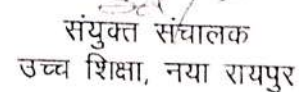 संयुक्त संचालक
उच्च शिक्षा, नया रायपुर